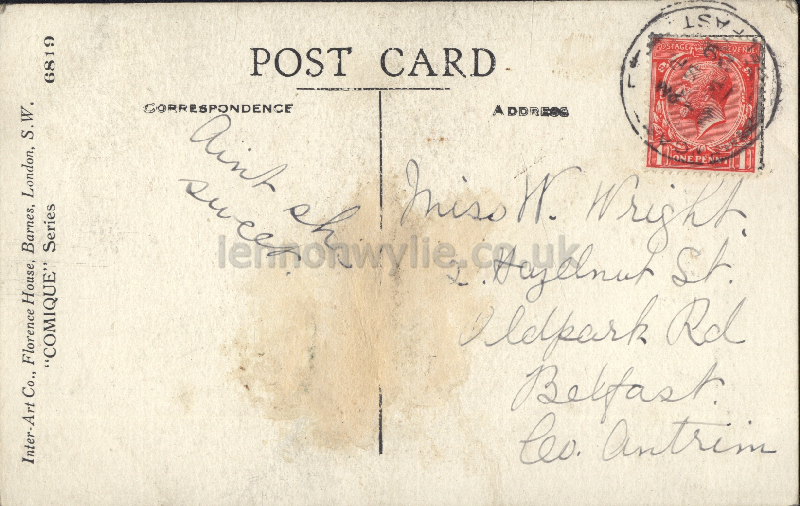 POST CARD
CORRESPONDENCE
ADDRESS
Aint sh
sweet
Miss W. Wright.
2. Hazelnut St.
Oldpark Rd
Belfast.
Co. Antrim
Inter-Art Co., Florence House, Barnes, London, S.W.
"COMIQUE" Series 6819
POSTAGE REVENUE
ONE PENNY
lennonwylie.co.uk